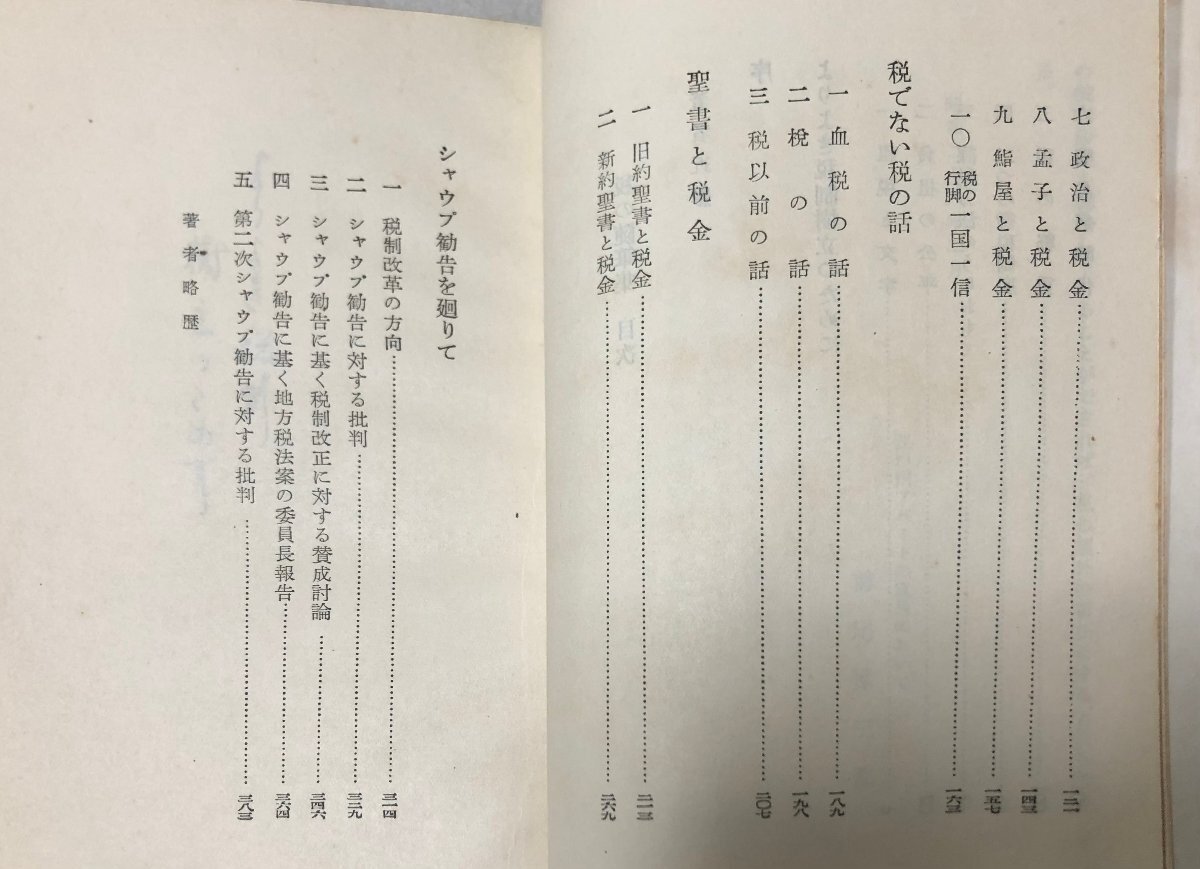 七 政治と税金……一二一
八 孟子と税金……一四三
九 鮨屋と税金……一五七
一〇 税の行脚 一国一信……一六三
税でない税の話
一 血税の話……一八九
二 梲の話……一九八
三 税以前の話……二〇七
聖書と税金
一 旧約聖書と税金……二一三
二 新約聖書と税金……二六九
シャウプ勧告を廻りて
一 税制改革の方向……三一四
二 シャウプ勧告に対する批判……三二九
三 シャウプ勧告に基く税制改正に対する賛成討論……三四六
四 シャウプ勧告に基く地方税法案の委員長報告……三六四
五 第二次シャウプ勧告に対する批判……三八三
著者略歴